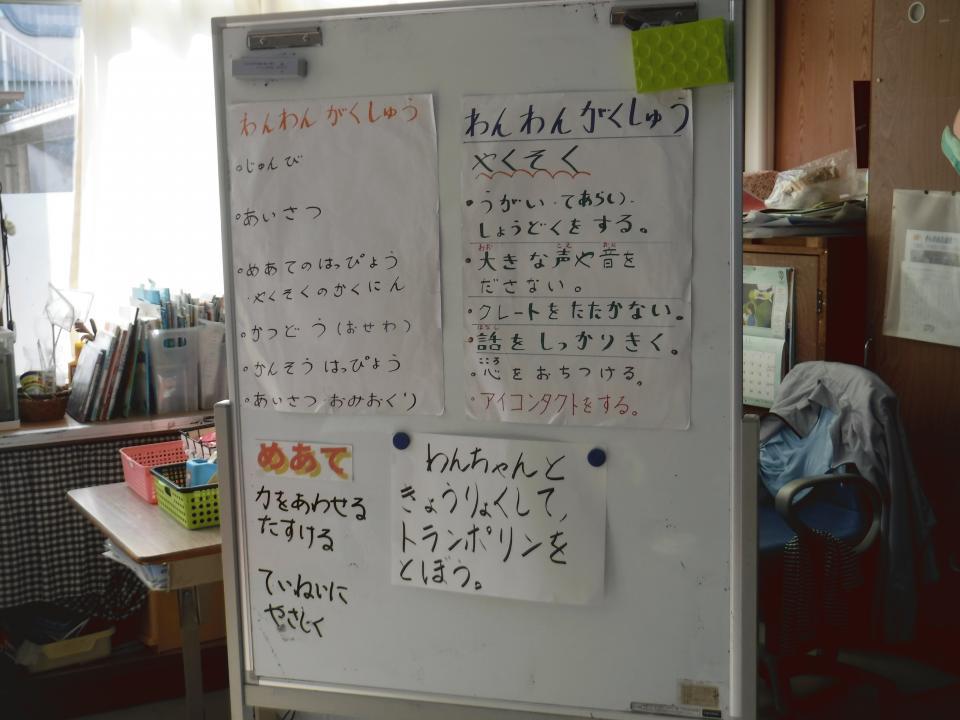 わんわん がくしゅう
・じゅんび
・あいさつ
・めあてのはっぴょう
・やくそくのかくにん
・かつどう(おせわ)
・かんそうはっぴょう
・あいさつ・おみおくり
わんわん がくしゅう
やくそく
・うがい・てあらい・
しょうどくをする。
・大きな声や音を
おお こえ おと
ださない。
・クレートをたたかない。
はなし
・話をしっかりきく。
こころ
・心をおちつける。
・アイコンタクトをする。
めあて
力をあわせる
たすける
ていねいに
やさしく
わんちゃんと
きょうりょくして、
トランポリンを
とぼう。